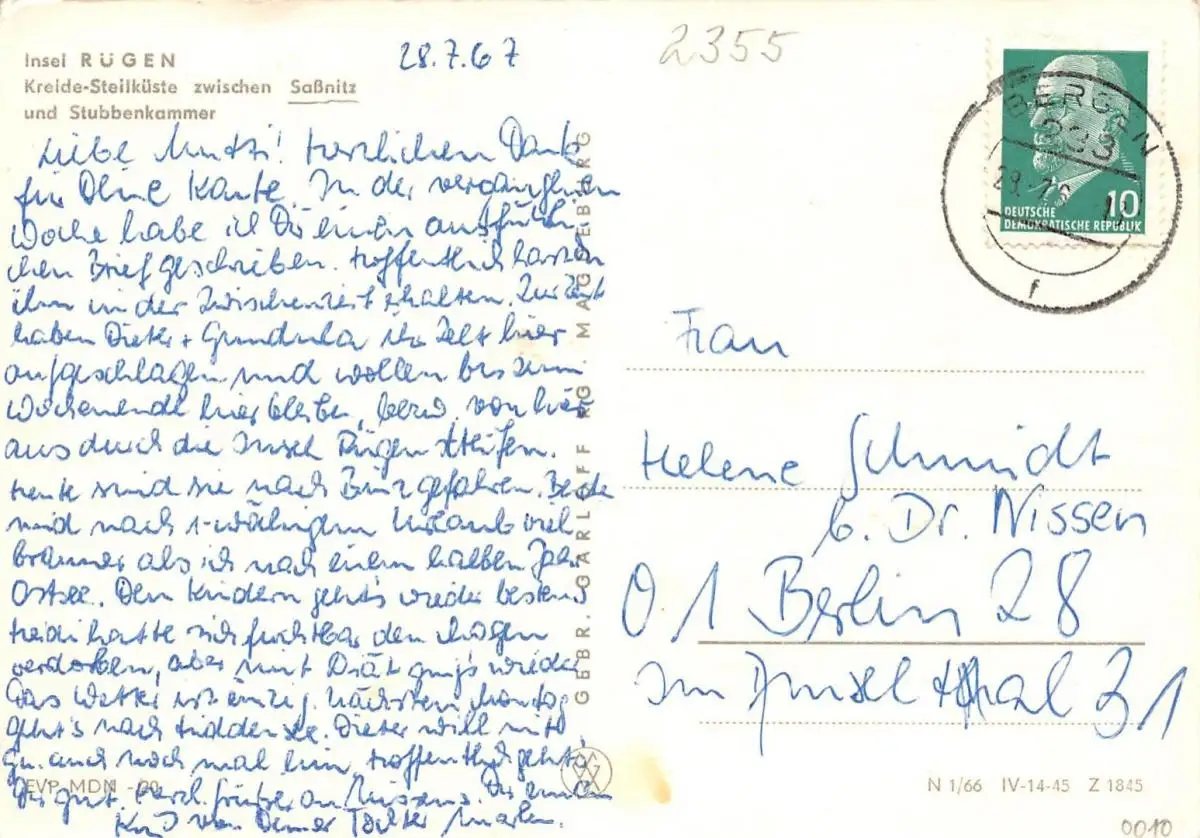 Insel RÜGEN
Kreide-Steilküste zwischen Saßnitz
und Stubbenkammer
28.7.67
2355
Liebe Mutti! Herzlichen Dank
für Deine Karte. In der vergangenen
Woche habe ich Dir einen ausführli
chen Brief geschrieben. Hoffentlich hast
ihn in der Zwischenzeit erhalten. Zur Zeit
haben Dieter + Gundula ihr Zelt hier
aufgeschlagen und wollen bis zum
Wochenende hier bleiben, bezw. von hier
aus durch die Insel Rügen
Heute sind sie nach Binz gefahren. Beide
sind nach 1-wöchigem Urlaub viel
brauner als ich nach einem halben Jahr
Ostsee. Den Kindern geht's wieder bestens
Heidi hatte sich furchtbar den Magen
verdorben, aber mit Diät ging's wieder
Das Wetter ist einzig. Nächsten Montag
geht's nach Hiddensee. Dieter will mit
Gu. auch noch mal hin. Hoffentlich geht's
Dir gut. Herzl. Grüße an Nissens. Dir einen
Kuß von Deiner Tochter Marlen.
GEBR. GARLOFF KG. MAGDEBURG
BERGEN
23
29. 7. 6
f
10
DEUTSCHE
DEMOKRATISCHE REPUBLIK
Frau
Helene Schmidt
b. Dr. Nissen
01 Berlin 28
Im Amseltal 31
EVP MDN -20
N 1/66 IV-14-45 Z 1845
0010